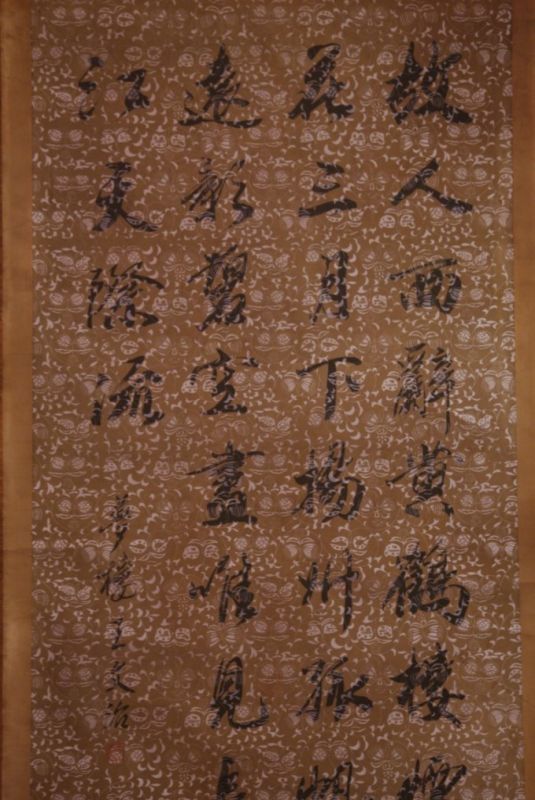 故人西辭黄鶴樓煙
花三月下揚州孤帆
遠影碧空盡唯見長
江天際流
夢樓王文治